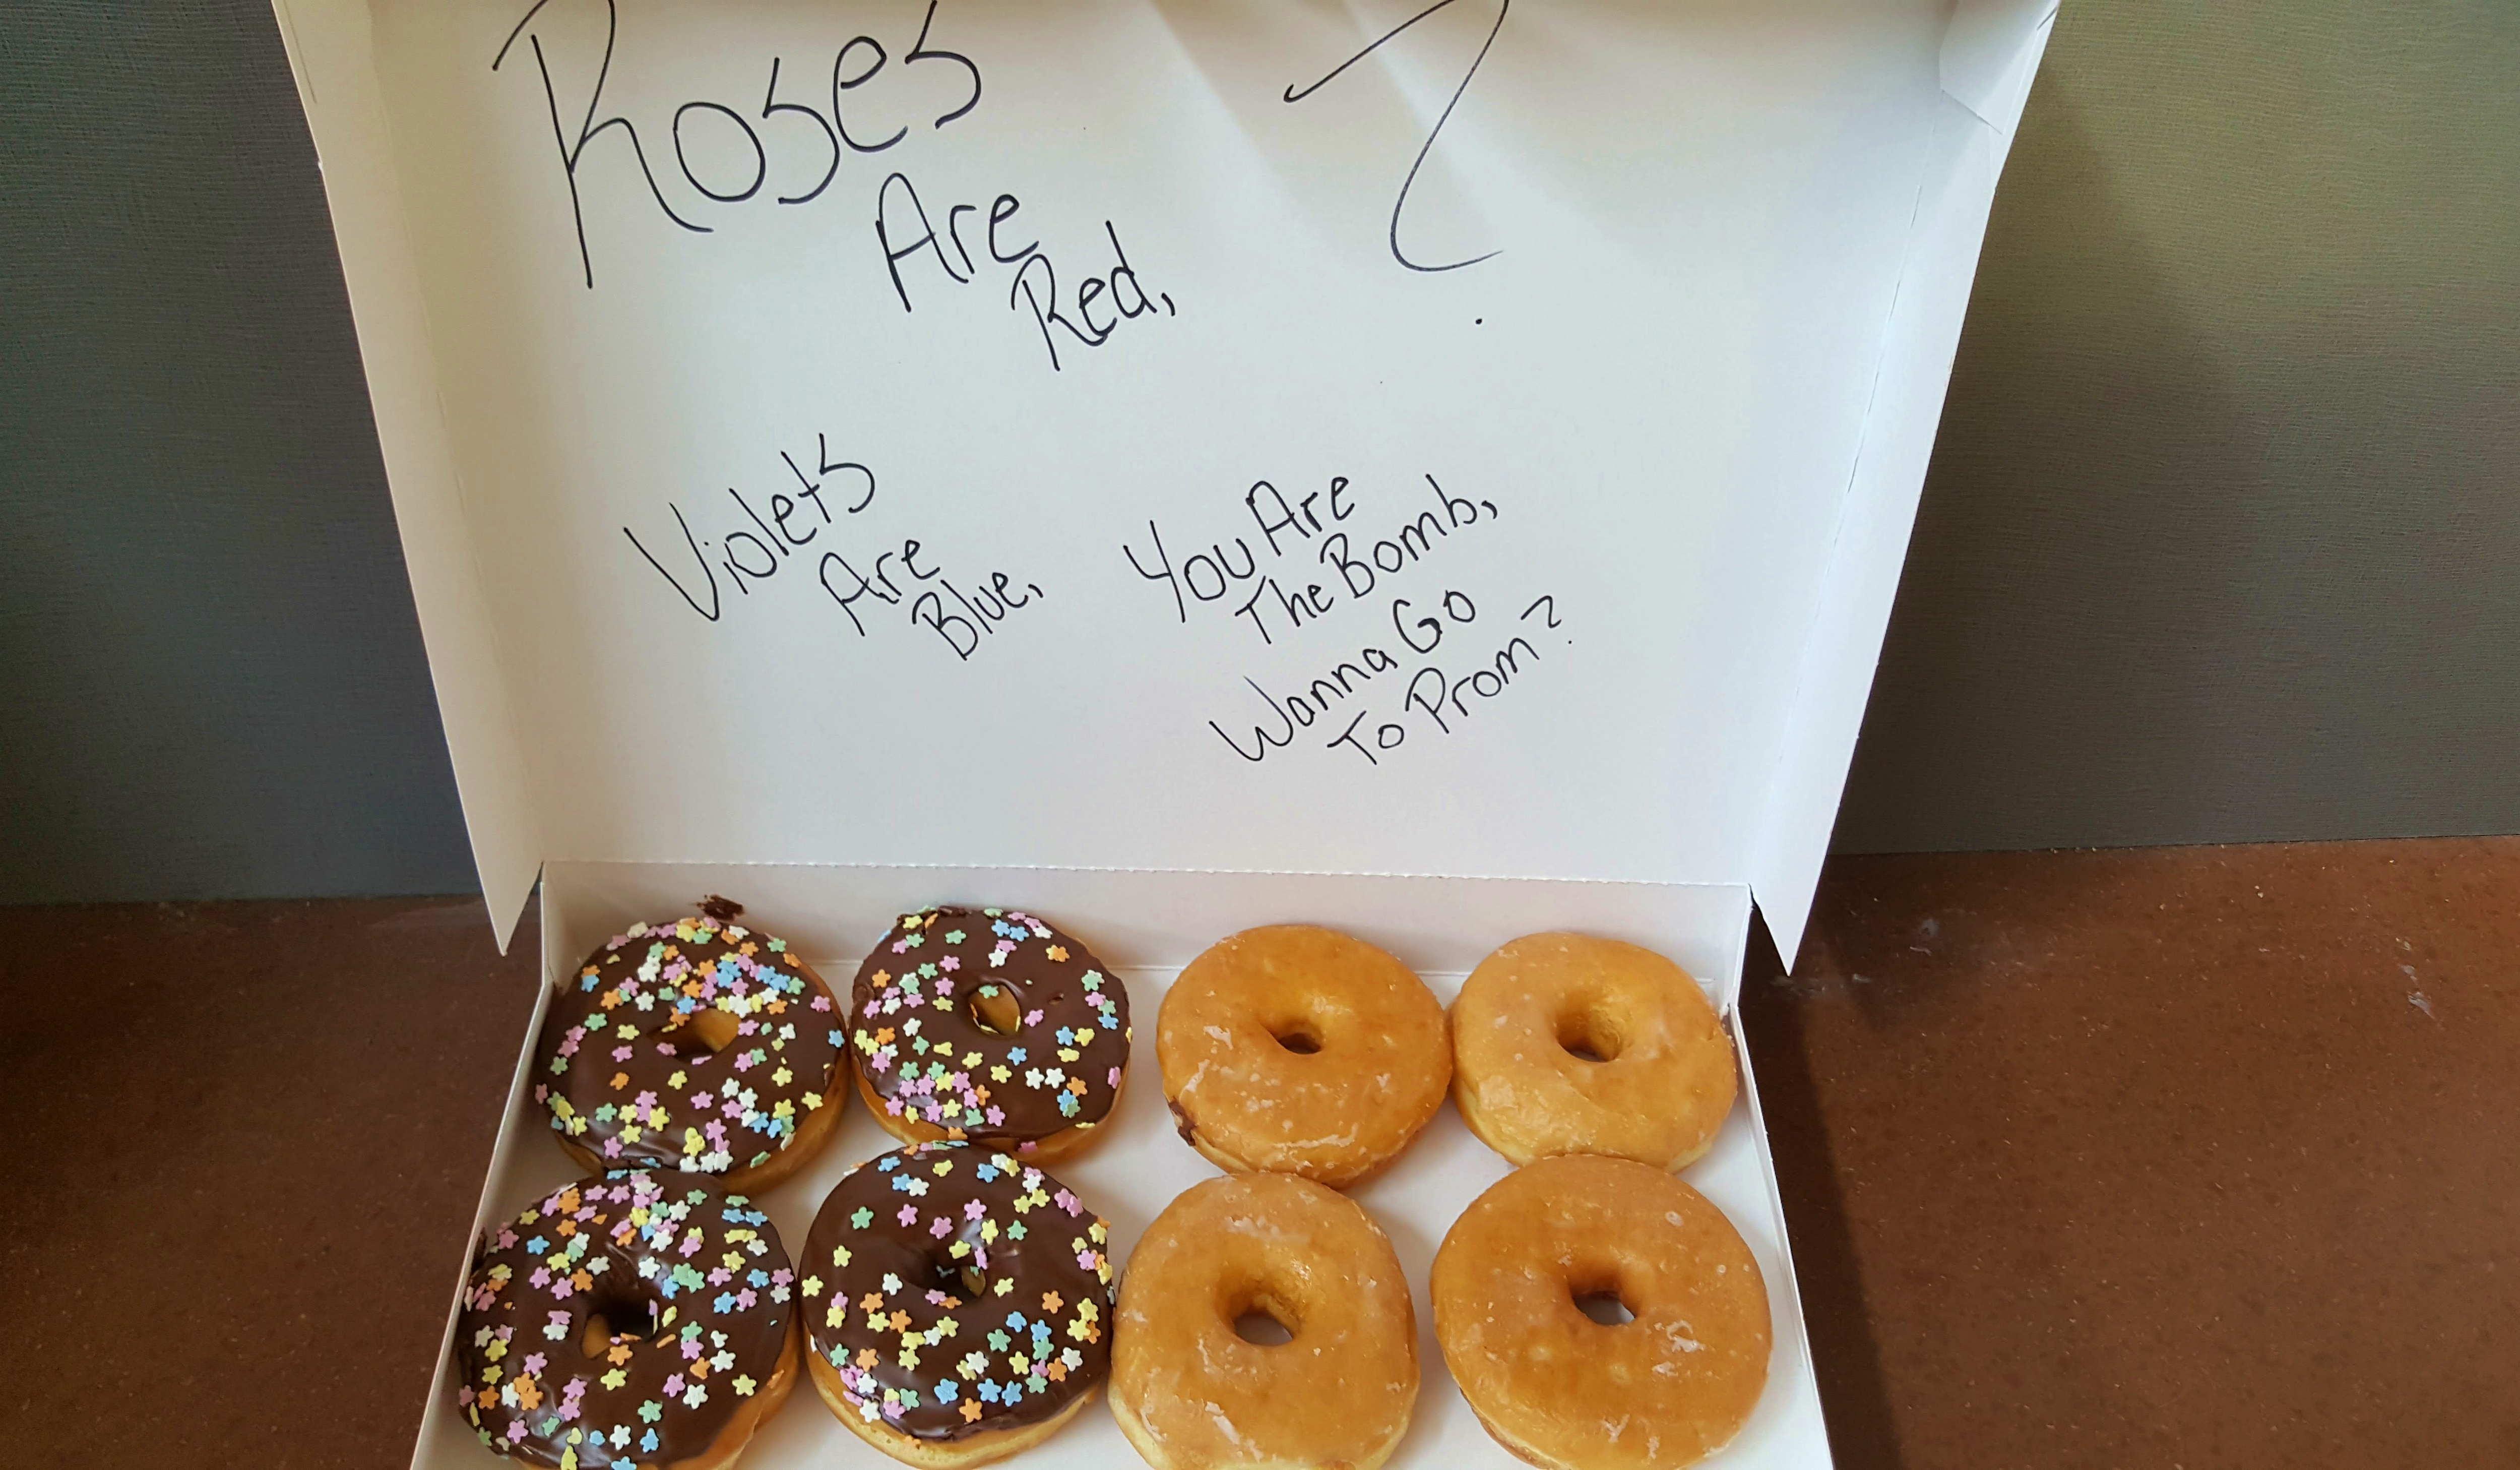 Roses
Are
Red,
?
Violets
Are
Blue,
You Are
The Bomb,
Wanna Go
To Prom?